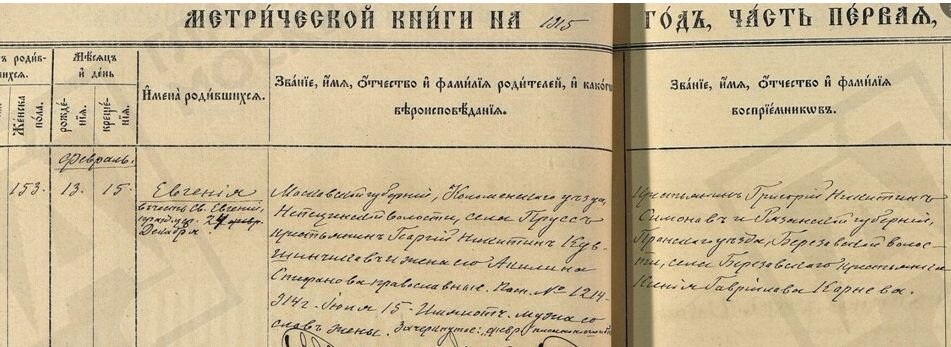 МЕТРИ́ЧЕСКОЙ КНИ́ГИ НА 1915 ГО́ДЪ, ЧА́СТЬ ПЕ́РВАЯ,
ъ родив-
шихся.
Женска
пола.
Мѣсяцъ
и день
рожде-
нія.
креще-
нія.
Имена родившихся.
Званіе, имя, отчество и фамилія родителей, и како
вѣроисповѣданія.
Званіе, имя, отчество и фамилія
воспріемниковъ.
Февраль.
153. 13. 15.
Евгенія
въ честь Св. Евгеніи,
празд. 24
Декабря.
Московской губерніи, Коломенскаго уѣзда,
Непецинской волости, села Пруссъ
крестьянинъ Георгій Никитинъ Кув-
шинчиковъ и жена его Акилина
Стефанова православные. №1214-
914 г. Іюня 15 - мужа со
словъ жены. Зачеркнутое: „февр.
Крестьянинъ Григорій Никитинъ
Симоновъ и Рязанской губерніи,
Пронскаго уѣзда, Березовской волос-
ти, села Березовскаго крестьянка
Ксенія Гавріилова Карнева.